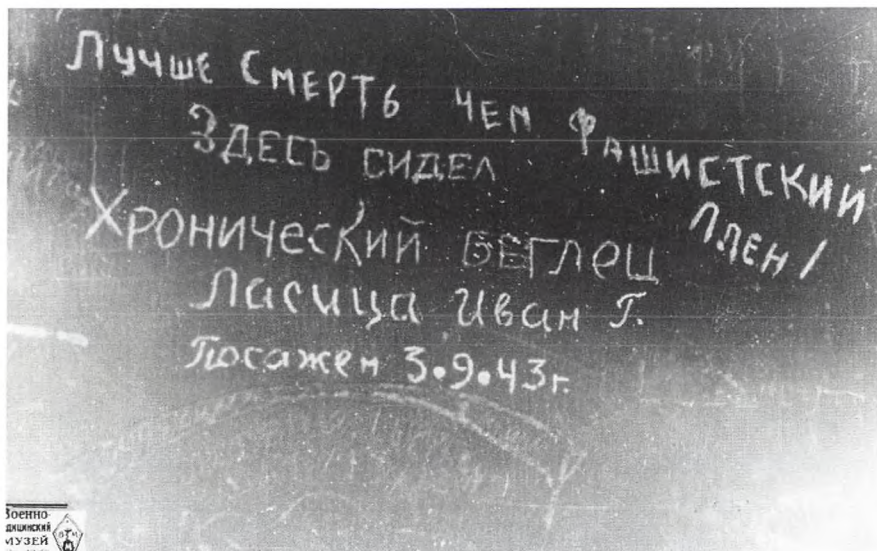 Лучше смерть чем фашистский
плен!
Здесь сидел
Хронический беглец
Ласица Иван Г.
Посажен 3.9.43г.
Военно-
медицинский
МУЗЕЙ